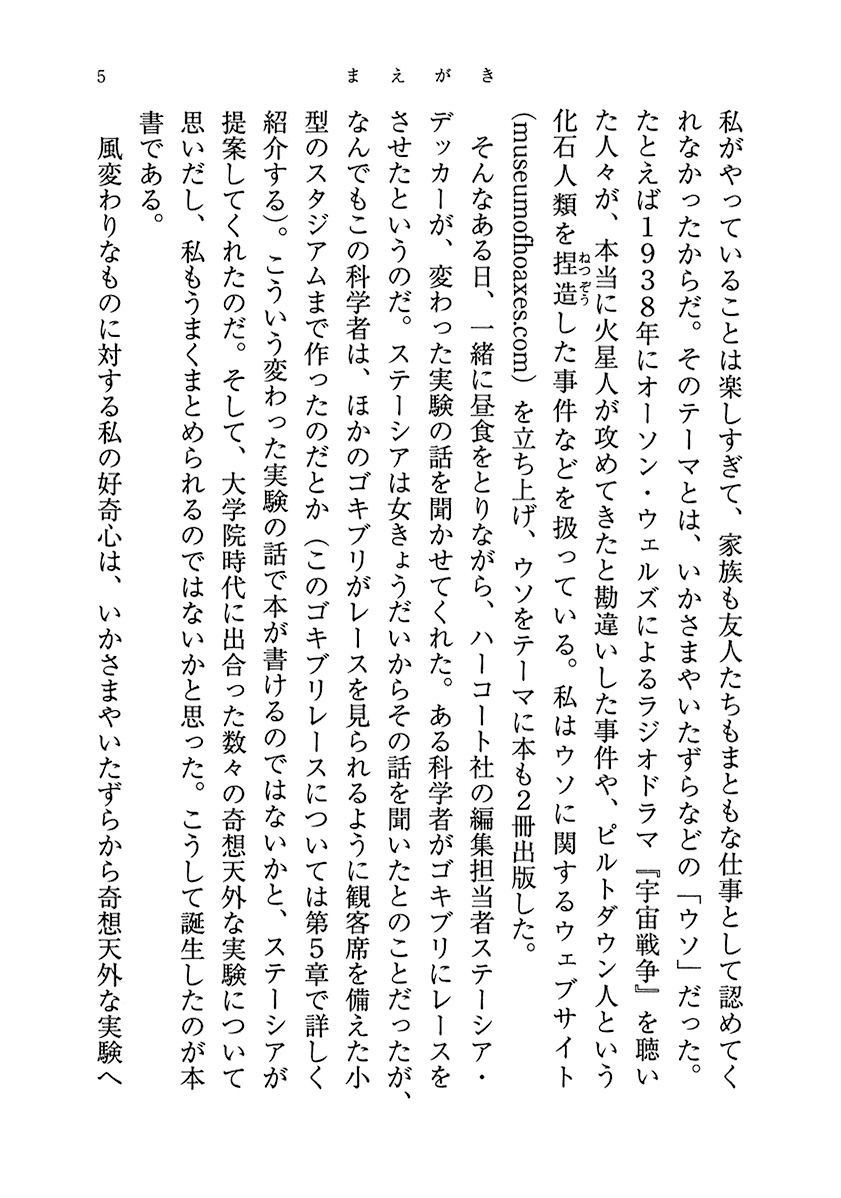 5
まえがき
私がやっていることは楽しすぎて、家族も友人たちもまともな仕事として認めてく
れなかったからだ。そのテーマとは、いかさまやいたずらなどの「ウソ」だった。
たとえば1938年にオーソン・ウェルズによるラジオドラマ『宇宙戦争』を聴い
た人々が、本当に火星人が攻めてきたと勘違いした事件や、ピルトダウン人という
化石人類を捏造した事件などを扱っている。私はウソに関するウェブサイト
ねつぞう
(museumofhoaxes.com)を立ち上げ、ウソをテーマに本も2冊出版した。
そんなある日、一緒に昼食をとりながら、ハーコート社の編集担当者ステーシア・
デッカーが、変わった実験の話を聞かせてくれた。ある科学者がゴキブリにレースを
させたというのだ。ステーシアは女きょうだいからその話を聞いたとのことだったが、
なんでもこの科学者は、ほかのゴキブリがレースを見られるように観客席を備えた小
型のスタジアムまで作ったのだとか(このゴキブリレースについては第5章で詳しく
紹介する)。こういう変わった実験の話で本が書けるのではないかと、ステーシアが
提案してくれたのだ。そして、大学院時代に出合った数々の奇想天外な実験について
思いだし、私もうまくまとめられるのではないかと思った。こうして誕生したのが本
書である。
風変わりなものに対する私の好奇心は、いかさまやいたずらから奇想天外な実験へ